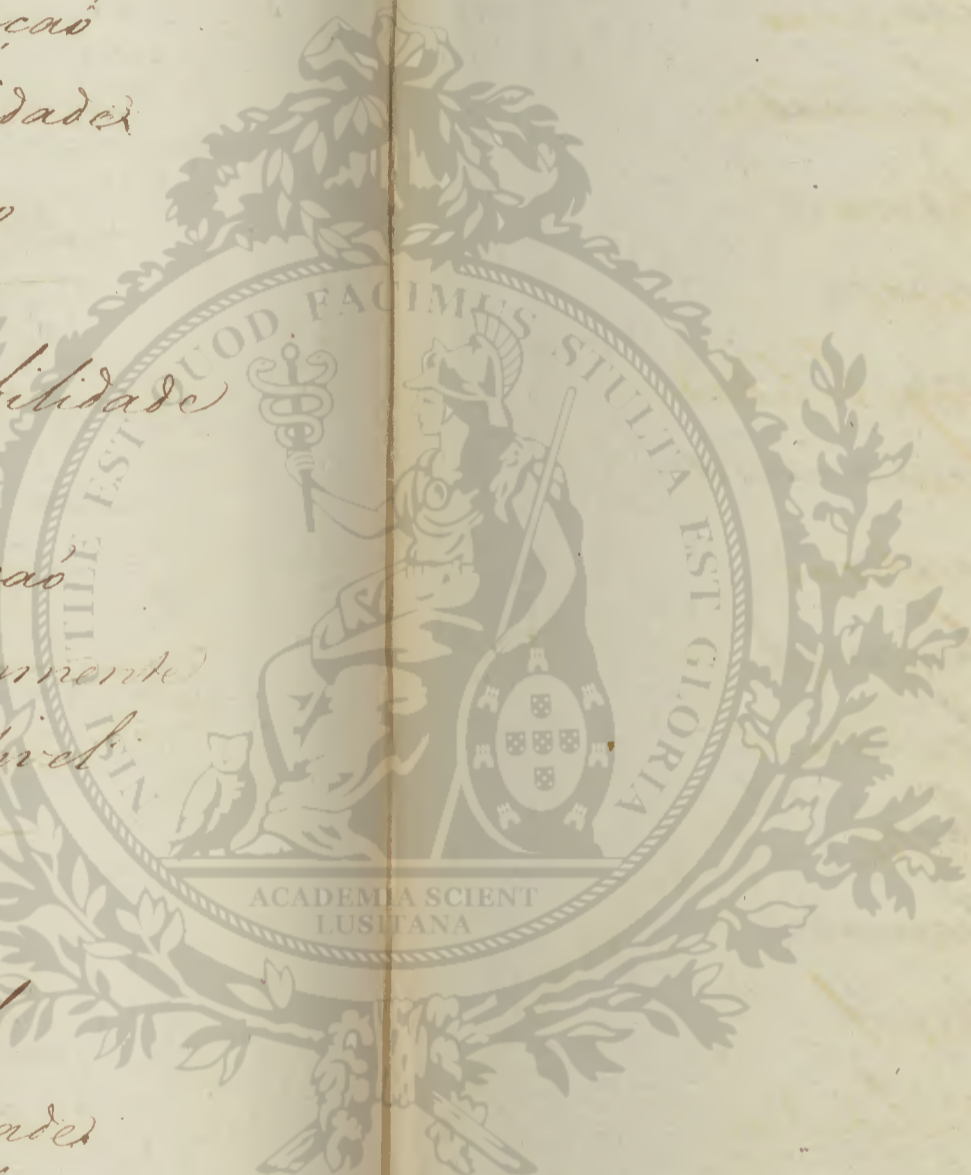 çaõ
dades
o
bilidade
aõ
mente
ivel
ades
NISI UTILE EST QUOD FACIMUS STULTA EST GLORIA
ACADEMIA SCIENT
LUSITANA